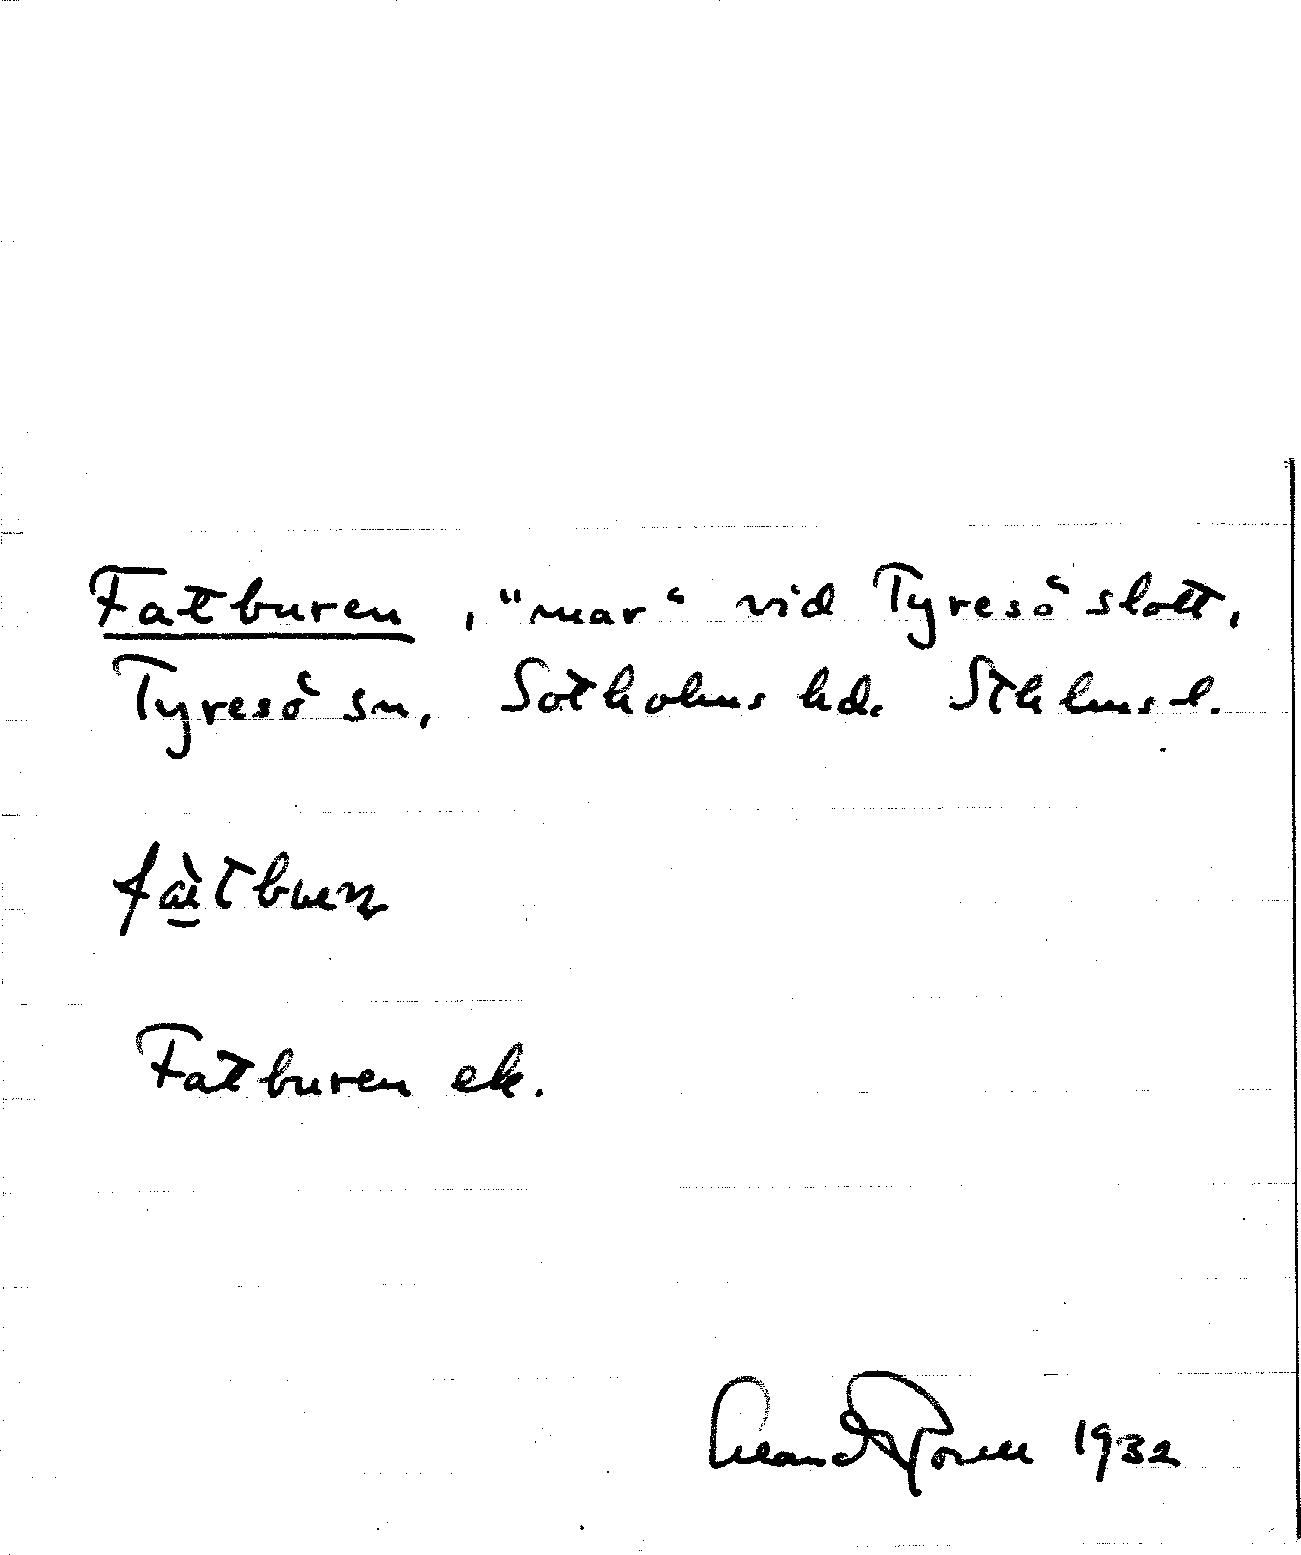 Fatburen, "mar" vid Tyresö slott,
Tyresö sn, Sotholms hd. Sthlms l.
Fatburen ek.
1932